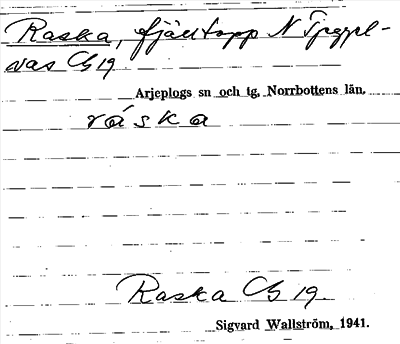 Raska, fjälltopp N Tjeggel-
vas Cg 19
Arjeplogs sn och tg. Norrbottens län.
ráska
Raska Cg 19.
Sigvard Wallström, 1941.